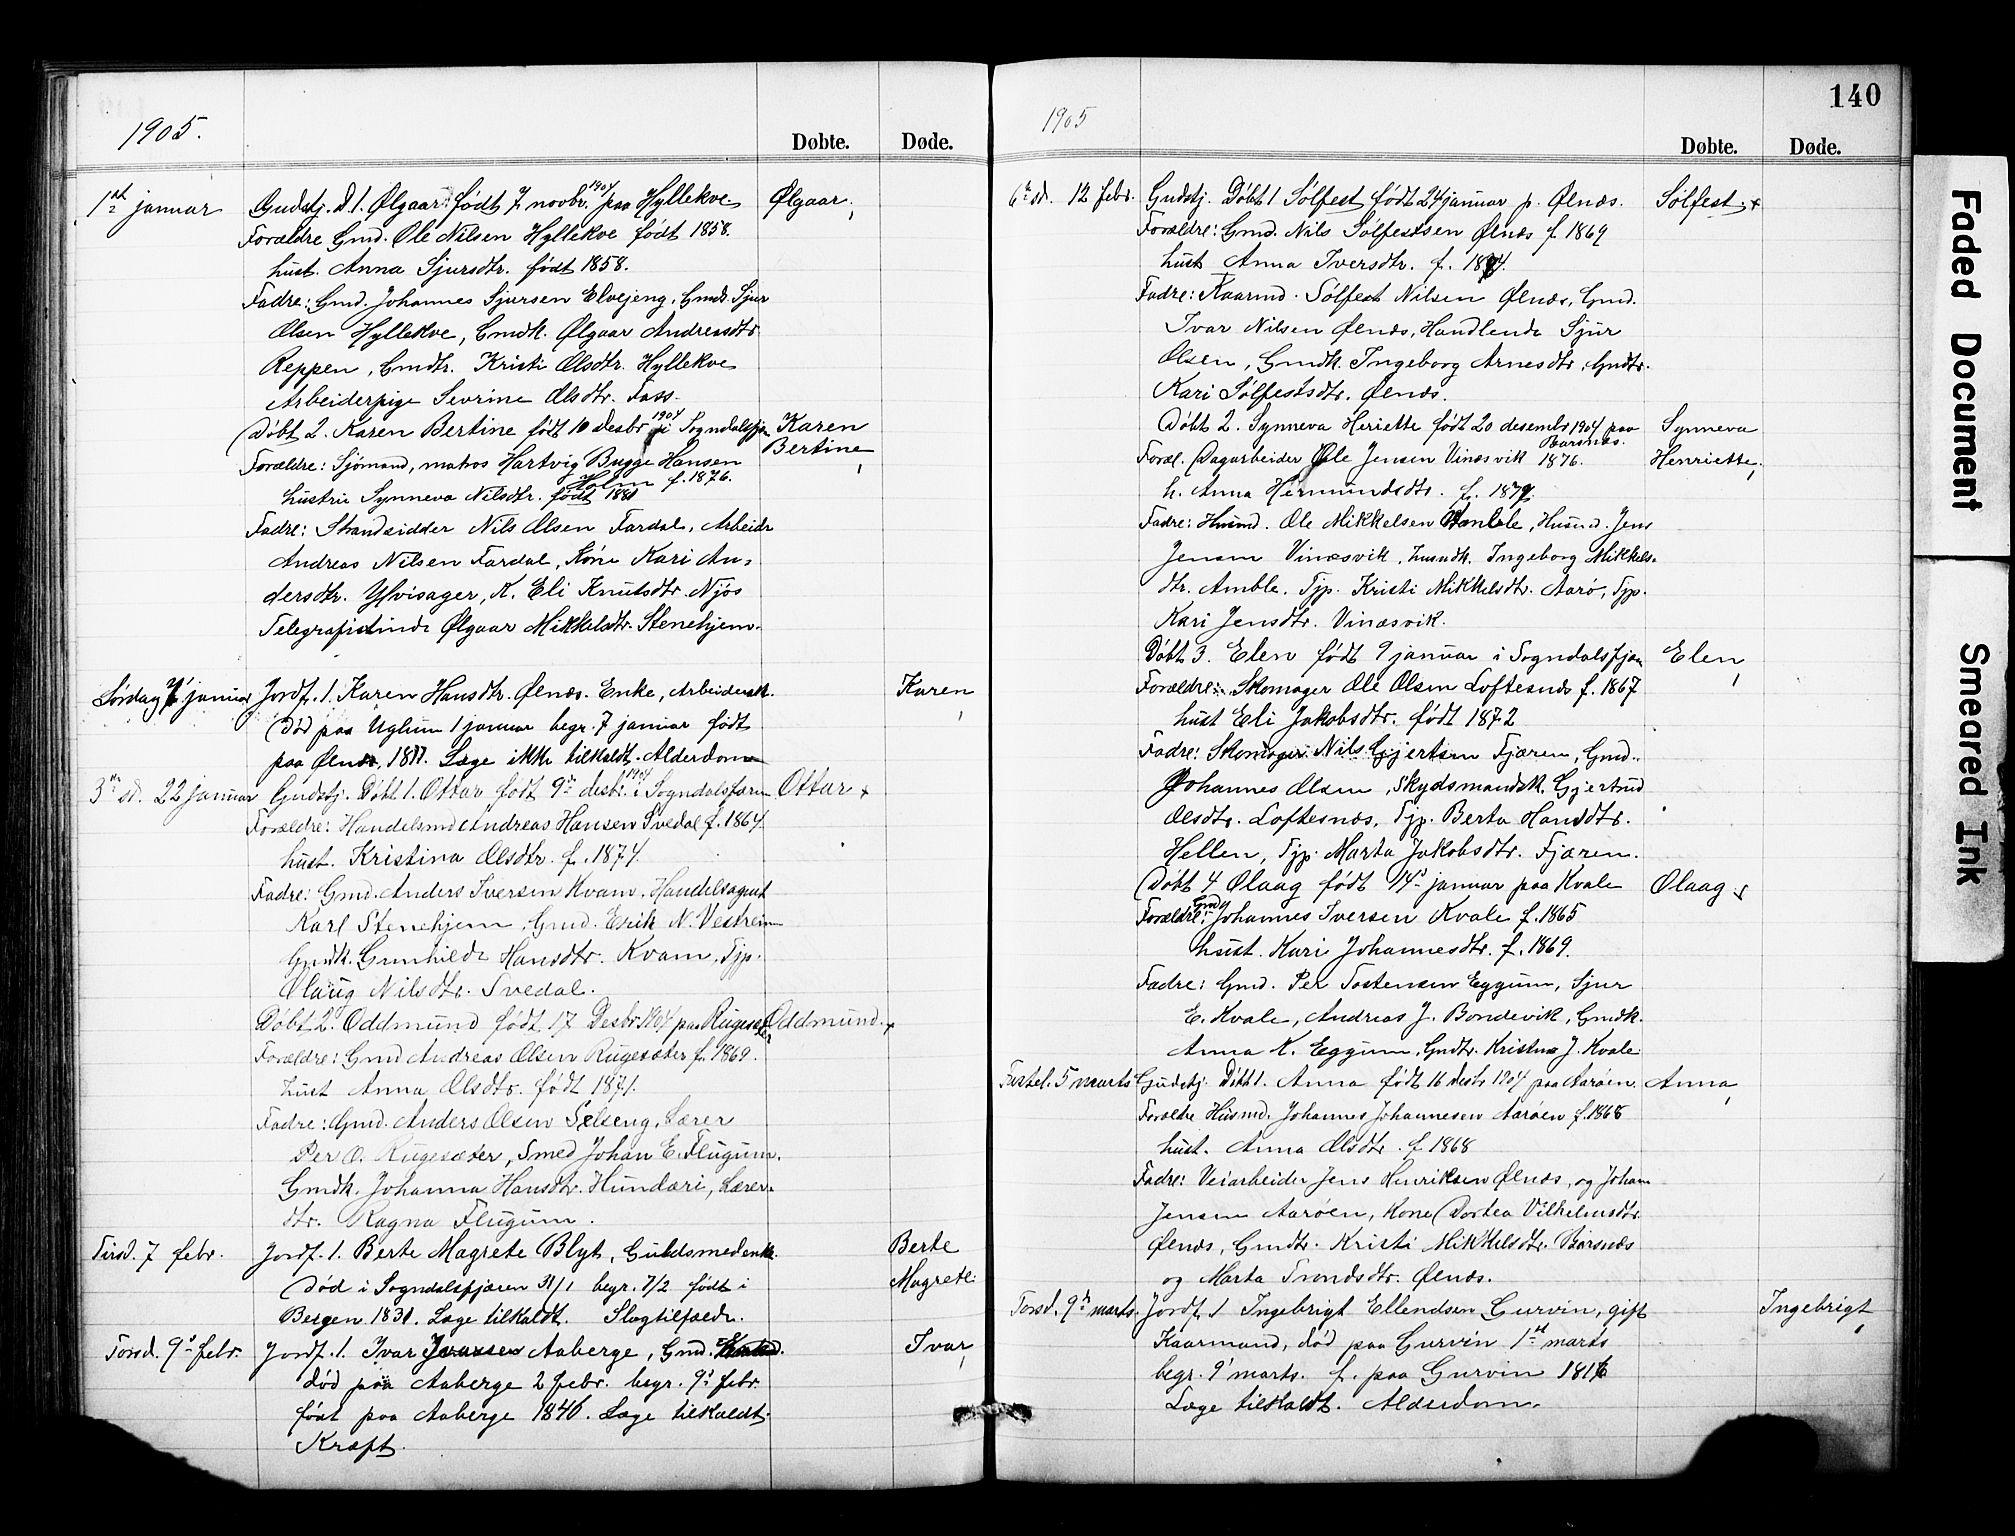 1905.
Døbte. Døde.
1ste januar Gudstj. D. 1. Ølgaar født 7 novbr. 1904 paa Hyllekve Ølgaar
Forældre Gmd. Ole Nilsen Hyllekve født 1858.
hust. Anna Sjursdtr. født 1858.
Fadre: Gmd. Johannes Sjursen Elvejeng, Gmds. Sjur
Olsen Hyllekve, Gmdk. Ølgaar Andreasdtr
Reppen, Gmdtr. Kristi Olsdtr. Hyllekve
Arbeiderpige Sevrine Olsdtr. Foss.
Døbt 2. Karen Bertine født 10 desbr 1904 i Sogndalsfjæ Karen
Bertine
Forældre: Sjømand, matros Hartvig Bugge Hansen
Holm f. 1876.
hustru Synneva Nilsdtr. født 1881
Fadre: Strandsidder Nils Olsen Fardal, Arbeidr
Andreas Nilsen Fardal, Kone Kari An-
dersdtr. Ylvisager, K. Eli Knutsdtr. Njøs
Telegrafistinde Ølgaar Mikkelsdtr. Stenehjem.
Lørdag 7 januar Jordf. 1. Karen Hansdtr. Ølnæs. Enke, Arbeidersk. Karen
Død paa Uglum 1 januar begr. 7 januar født
paa Ølnæs, Læge ikke tilkaldt. Alderdom
3die sd. 22 januar Gudstj. Døbt 1. Ottar født 9de desbr. 1904 i Sogndalsfæren Ottar +
Forældre: Handelsmd Andreas Hansen Svedal f. 1864
hust. Kristina Olsdtr. f. 1874.
Fadre: Gmd. Anders Iversen Kvam, Handelsagent
Karl Stenehjem, Gmd. Erik N. Vestrein
Gmdk. Gunhilde Hansdtr. Kvam, Tjp.
Olaug Nilsdtr. Svedal.
Døbt 2. Oddmund født 17 Desbr 1904 paa Rugesæter Oddmund. +
Forældre: Gmd Andreas Olsen Rugesæter f. 1869.
hust Anna Olsdtr. født 1871.
Fadre: Gmd. Anders Olsen Selseng, Lærer
Per O. Rugesæter, Smed Johan E. Flugum.
Gmdk. Johanna Hansdtr. Hundæri, Lærer-
dtr. Ragna Flugum.
Tirsd. 7 febr. Jordf. 1. Berte Magrete Blyt, Guldsmedenk. Berte
Død i Sogndalsfjæren 31/1 begr. 7/2 født i Magrete
Bergen 1831. Læge tilkaldt. Slagtilfælde.
Torsd. 9de febr. Jordf. 1. Ivar Aaberge, Gmd. Ivar
død paa Aaberge 2 febr. begr. 9de febr.
født paa Aaberge 1846. Læge tilkaldt.
Kræft.
140
1905
Døbte. Døde.
6te sd. 12 febr. Gudstj. Døbt 1 Sølfest født 24 januar p. Ølnæs. Sølfest. +
Forældre: Gmd. Nils Sølfestsen Ølnæs f. 1869
hust Anna Iversdtr. f.
Fadre: Kaarmd. Sølfest Nilsen Ølnæs, Gmd.
Ivar Nilsen Ølnæs, Handlende Sjur
Olsen, Gmdk. Ingeborg Arnesdtr, Gmdtr.
Kari Sølfestsdtr. Ølnæs.
Døbt 2. Synneva Heriette født 20 desembr 1904 paa Synneva
Barsnæs.
Foræl. Dagarbeider Ole Jensen Vinæsvik 1876. Henriette
h. Anna Hermundsdtr. f.
Fadre: Husmd. Ole Mikkelsen Amble, Husmd. Jens
Jensen Vinæsvik, husmdk. Ingeborg Mikkels-
dtr. Amble. Tjp. Kristi Mikkelsdtr. Aarø, Tjp.
Kari Jensdtr. Vinæsvik.
Døbt 3. Elen født 9 januar i Sogndalsfjæren Elen
Forældre: Skomager Ole Olsen Loftesnæs f. 1867
hust Eli Jakobsdtr. født 1872
Fadre: Skomager Nils Gjertsen Fjæren, Gmd.
Johannes Olsen, Skydsmandsk. Gjertrud
Olsdtr. Loftesnæs, Tjp. Berta Hansdtr.
Hellen, Tjp. Marta Jakobsdtr. Fjæren.
Døbt 4 Olaag født 14de januar paa Kvale Olaag +
Forældre: Gmd Johannes Iversen Kvale f. 1865
hust. Kari Johannesdtr. f. 1869.
Fadre: Gmd. Per Tostensen Eggum, Sjur
E. Kvale, Andreas J. Bondevik, Gmdk.
Anna K. Eggum, Gmdtr. Kristine J. Kvale
Fastel. 5 marts Gudstj. Døbt 1. Anna født 16 desbr 1904 paa Aarøen. Anna
Forældre Husmd. Johannes Johannesen Aarøen f. 1868
hust. Anna Olsdtr. f 1868
Fadre: Veiarbeider Jens Henriksen Ølnæs, og Johan
Jensen Aarøen, Kone Dortea Vilhelmsdtr.
Ølnæs, Gmdtr. Kristi Mikkelsdtr. Barsnæs
og Marta Trondsdtr. Ølnæs.
Torsd. 9de marts. Jordf. 1 Ingebrigt Ellendsen Gurvin, gift Ingebrigt
Kaarmand, død paa Gurvin 1ste marts
begr. 9' marts. f. paa Gurvin 1816
Læge tilkaldt. Alderdom.
Faded Document
Smeared Ink